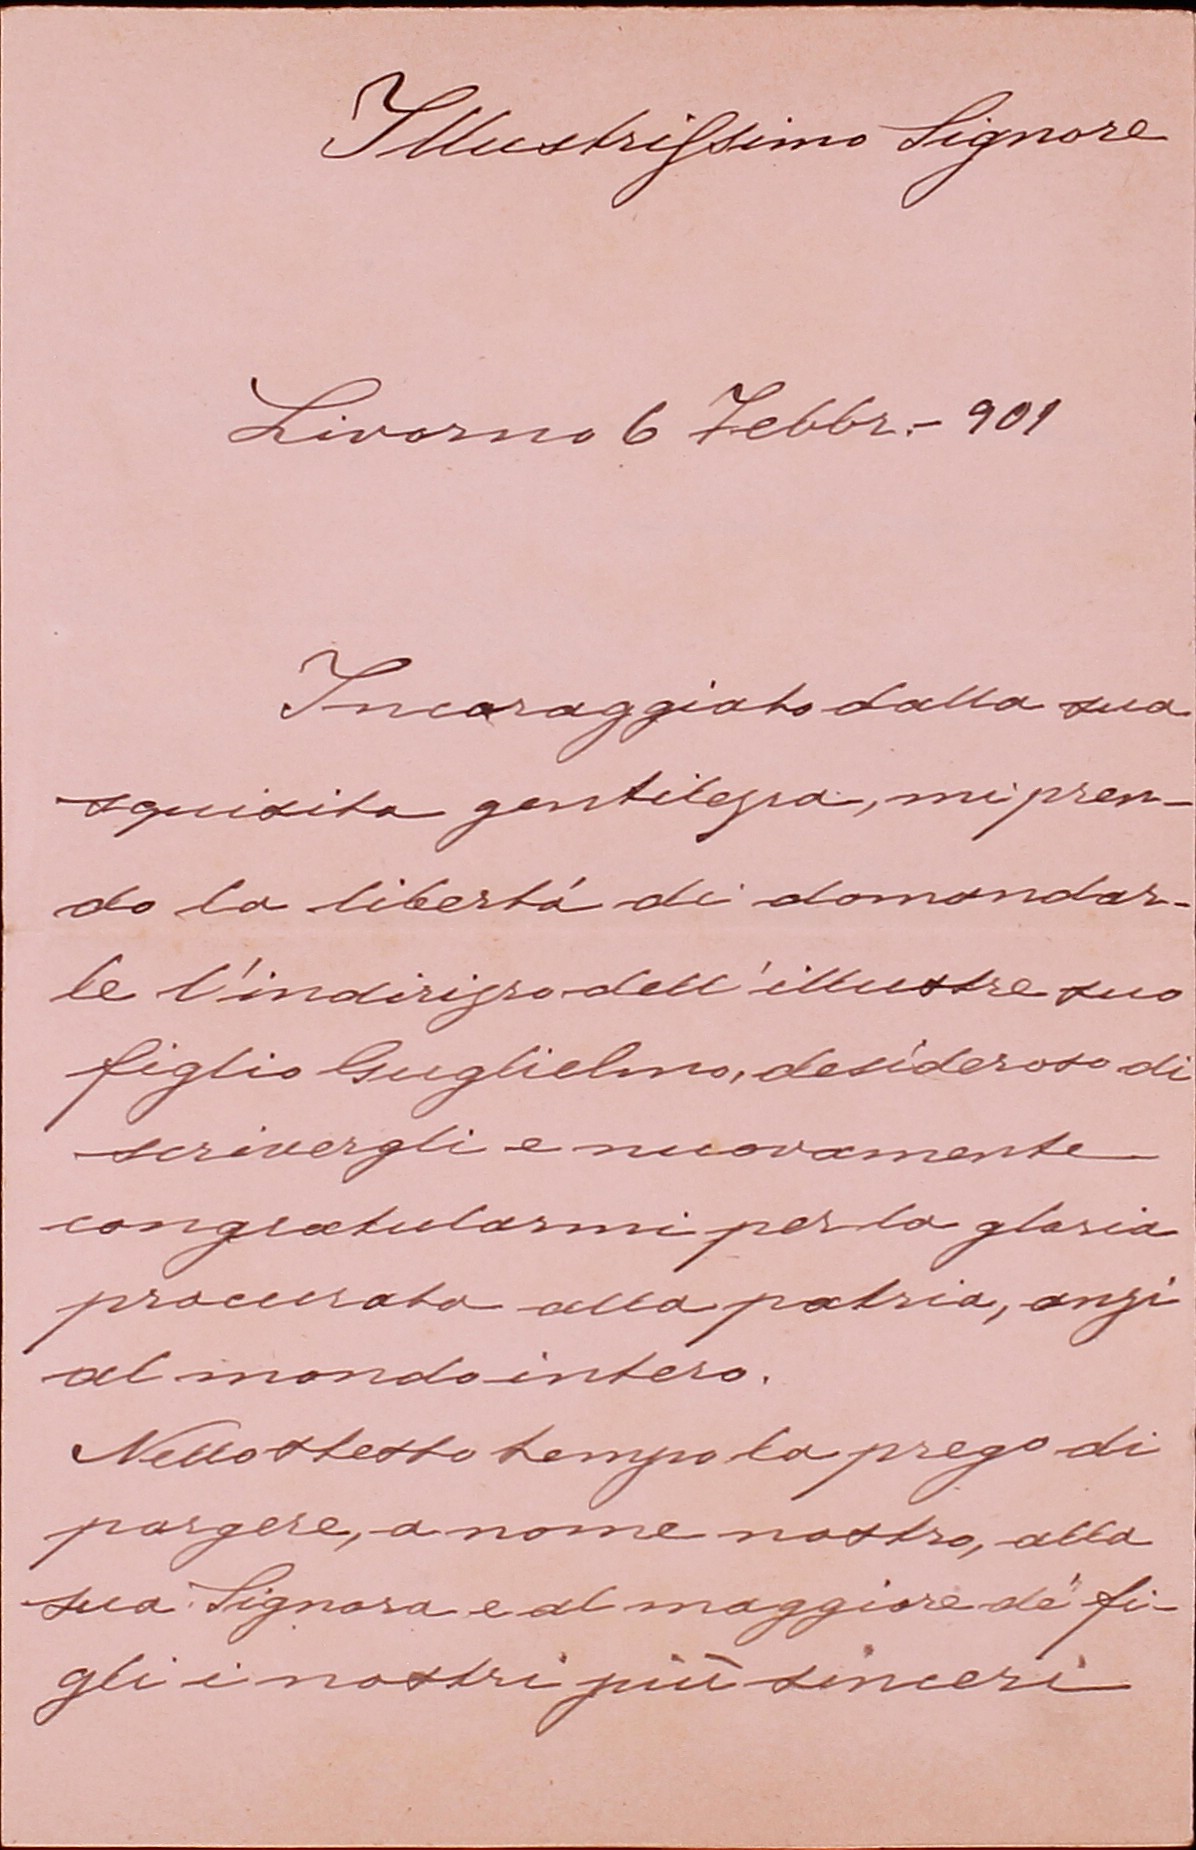 Illustrissimo Signore
Livorno 6 Febbr.- 901
Incoraggiato dalla sua
squisita gentilezza, mi pren-
do la libertá di domandar-
le l'indirizzo dell'illustre suo
figlio Guglielmo, desideroso di
scrivergli e nuovamente
congratularmi per la gloria
procurata alla patria, anzi
al mondo intero.
Nello stesso tempo la prego di
porgere, a nome nostro, alla
sua Signora e al maggiore de' fi-
gli i nostri più sinceri